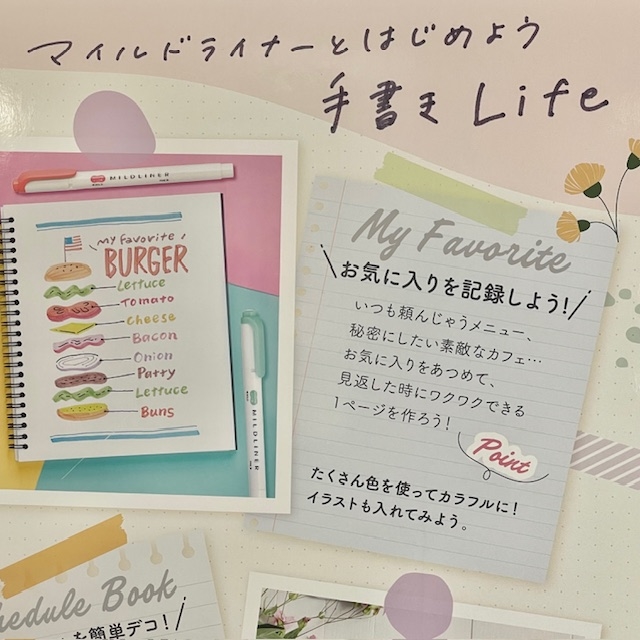 マイルドライナーとはじめよう
手書き Life
MILDLINER
My Favorite
BURGER
Lettuce
Tomato
Cheese
Bacon
Onion
Patty
Lettuce
Buns
MILDLINER
My Favorite
お気に入りを記録しよう!
いつも頼んじゃうメニュー、
秘密にしたい素敵なカフェ…
お気に入りをあつめて、
見返した時にワクワクできる
1ページを作ろう!
Point
たくさん色を使ってカラフルに!
イラストも入れてみよう。
hedule Book
を簡単デコ!